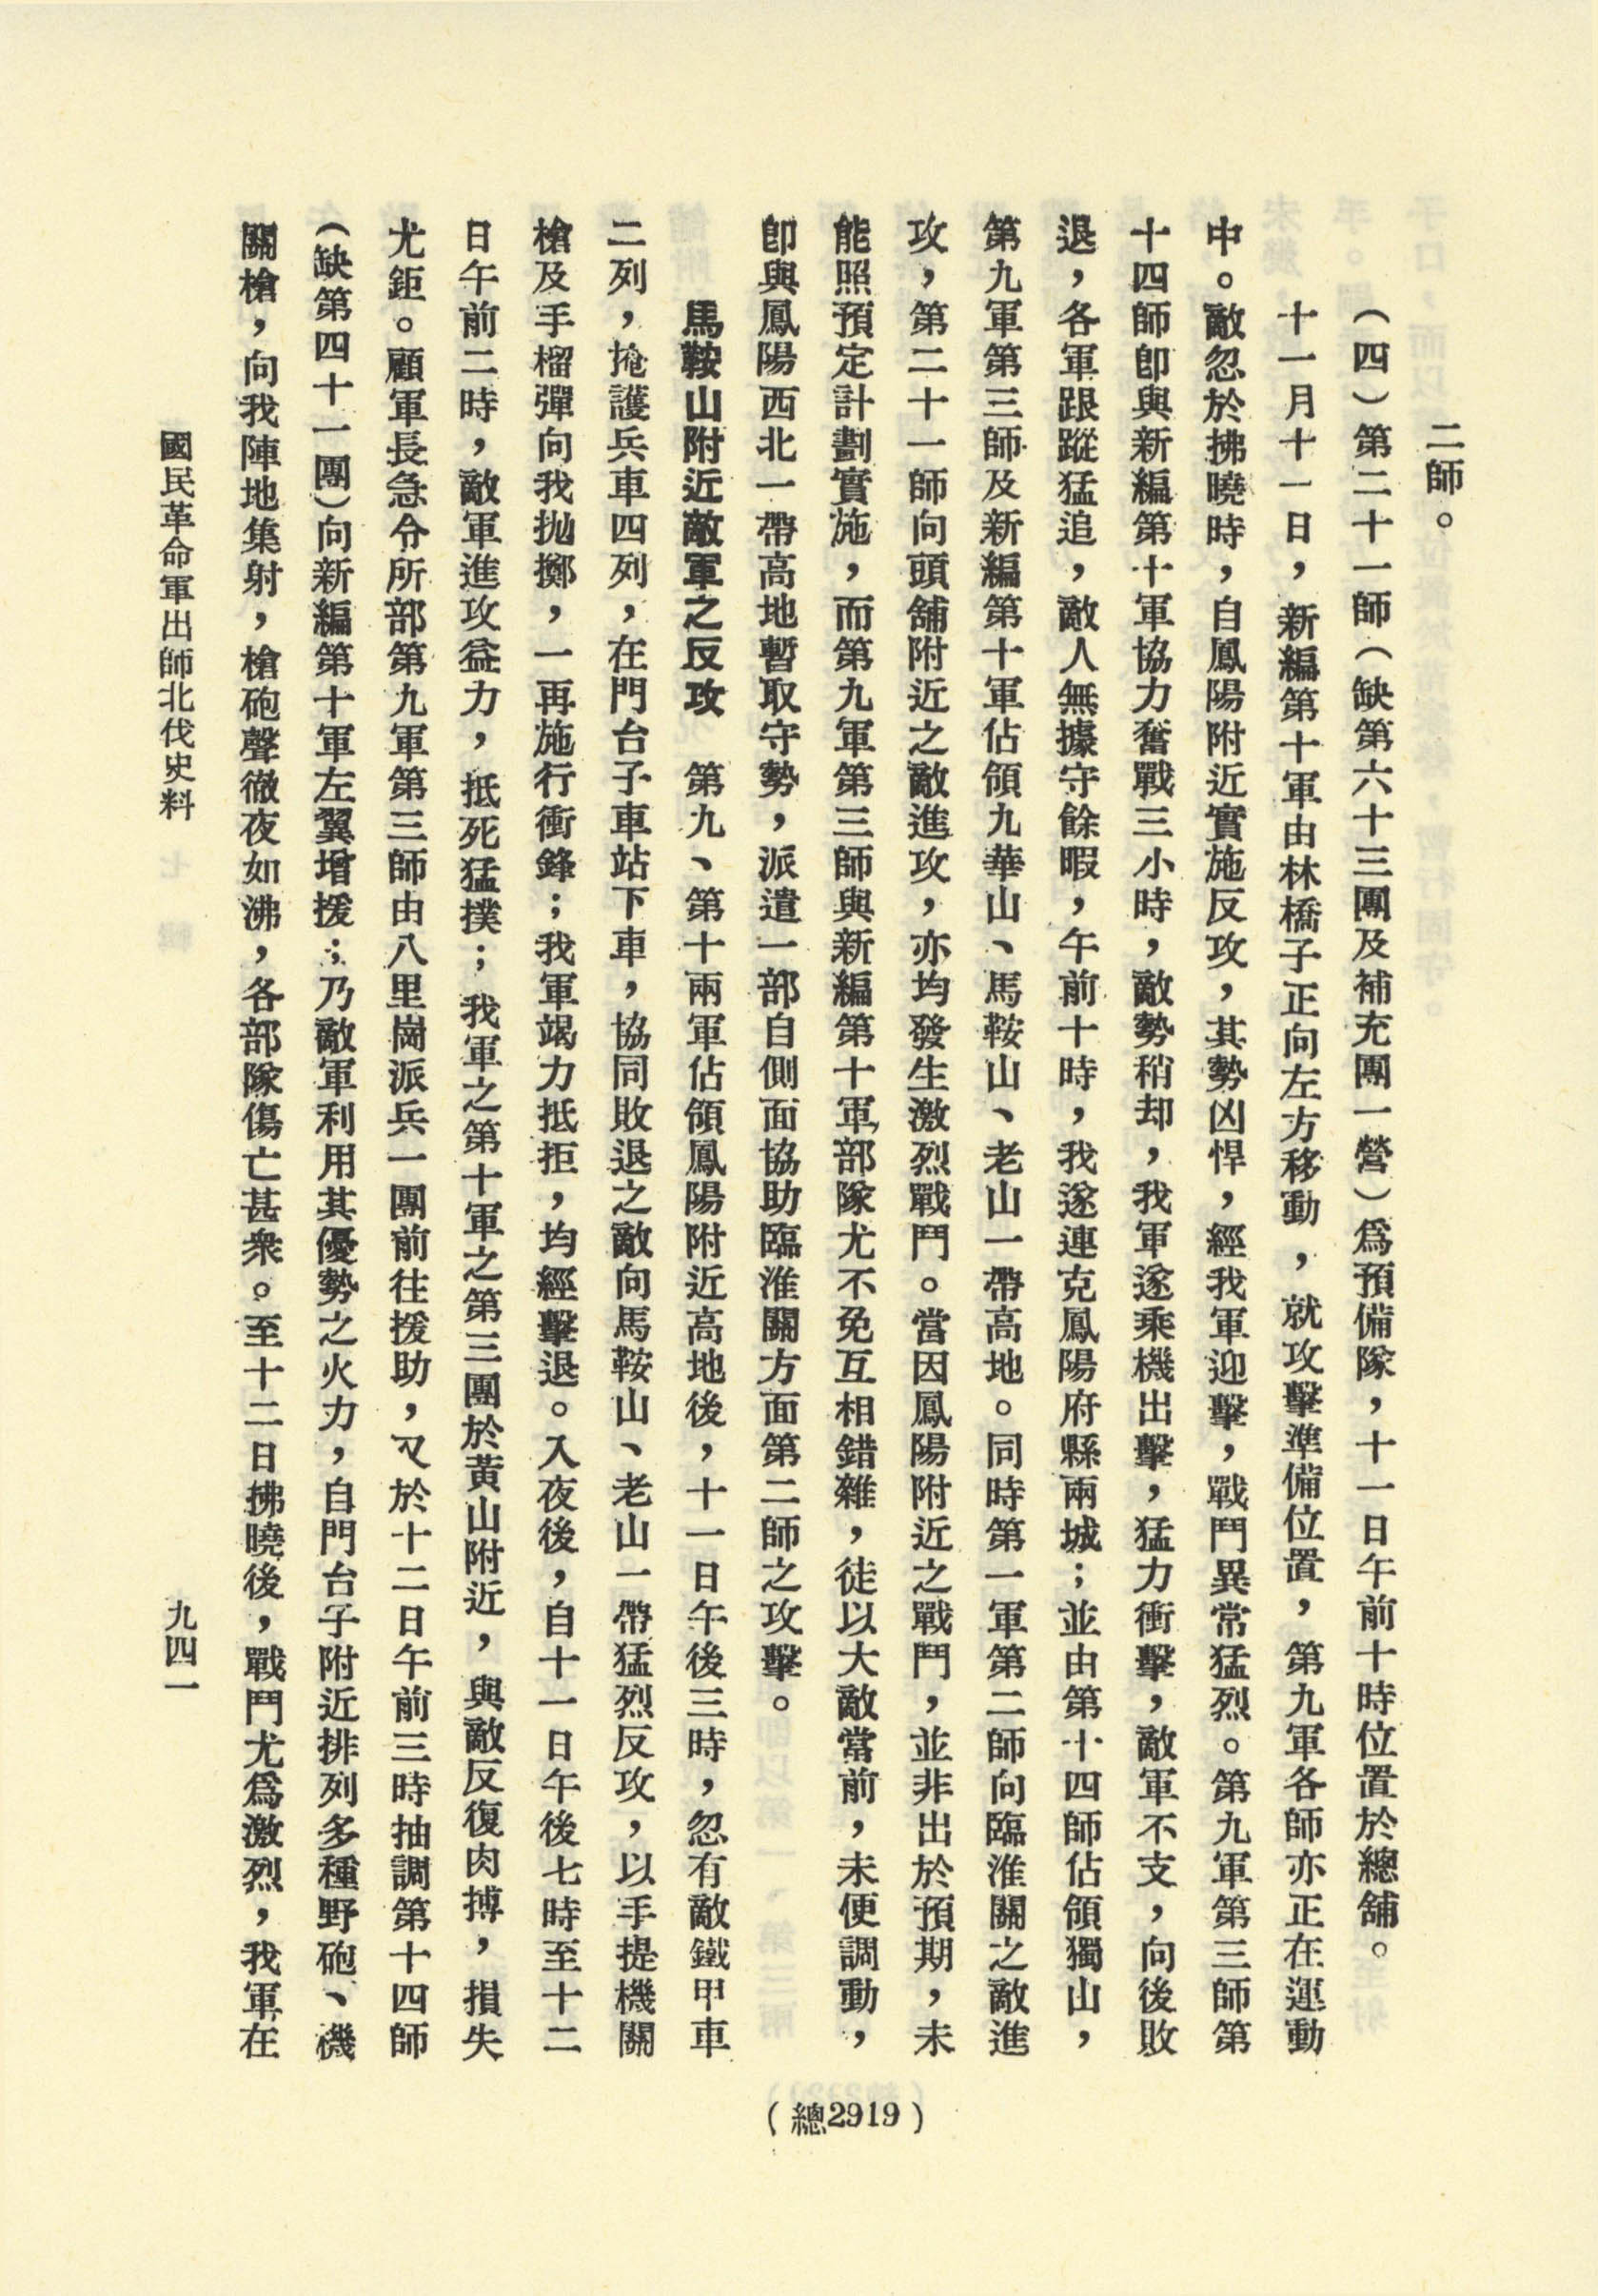 二師。
（四）第二十一師（缺第六十三團及補充團一營）爲預備隊，十一日午前十時位置於總舖。
十一月十一日，新編第十軍由林橋子正向左方移動，就攻擊準備位置，第九軍各師亦正在運動
中。敵忽於拂曉時，自鳳陽附近實施反攻，其勢凶悍，經我軍迎擊，戰鬥異常猛烈。第九軍第三師第
十四師卽與新編第十軍協力奮戰三小時，敵勢稍却，我軍遂乘機出擊，猛力衝擊，敵軍不支，向後敗
退，各軍跟蹤猛追，敵人無據守餘暇，午前十時，我遂連克鳳陽府縣兩城；並由第十四師佔領獨山，
第九軍第三師及新編第十軍佔領九華山、馬鞍山、老山一帶高地。同時第一軍第二師向臨淮關之敵進
攻，第二十一師向頭舖附近之敵進攻，亦均發生激烈戰鬥。當因鳳陽附近之戰鬥，並非出於預期，未
能照預定計劃實施，而第九軍第三師與新編第十軍部隊尤不免互相錯雜，徒以大敵當前，未便調動，
卽與鳳陽西北一帶高地暫取守勢，派遣一部自側面協助臨淮關方面第二師之攻擊。
馬鞍山附近敵軍之反攻　第九、第十兩軍佔領鳳陽附近高地後，十一日午後三時，忽有敵鐵甲車
二列，掩護兵車四列，在門台子車站下車，協同敗退之敵向馬鞍山、老山一帶猛烈反攻，以手提機關
槍及手榴彈向我拋擲，一再施行衝鋒；我軍竭力抵拒，均經擊退。入夜後，自十一日午後七時至十二
日午前二時，敵軍進攻益力，抵死猛撲；我軍之第十軍之第三團於黃山附近，與敵反復肉搏，損失
尤鉅。顧軍長急令所部第九軍第三師由八里崗派兵一團前往援助，又於十二日午前三時抽調第十四師
（缺第四十一團）向新編第十軍左翼增援；乃敵軍利用其優勢之火力，自門台子附近排列多種野砲、機
關槍，向我陣地集射，槍砲聲徹夜如沸，各部隊傷亡甚衆。至十二日拂曉後，戰鬥尤爲激烈，我軍在
國民革命軍出師北伐史料　九四一
（總2919）